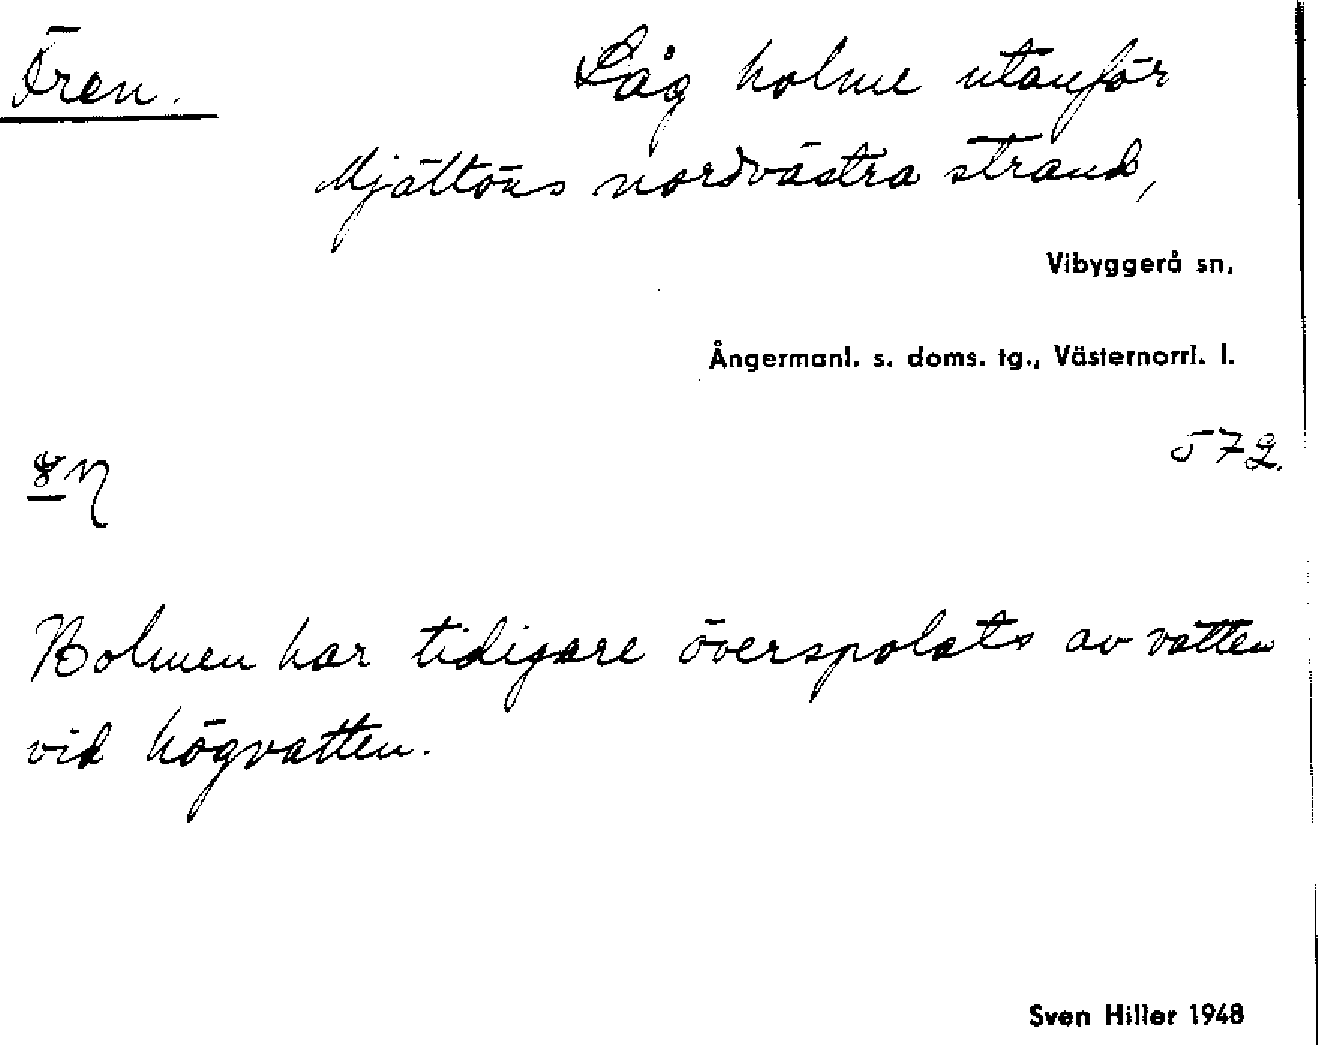 Fren. Låg holme utanför
Mjältöns nordvästra strand,
Vibyggerå sn.
Ångermanl. s. doms. tg., Västernorrl. l.
572.
Holmen har tidigare överspolats av vatten
vid högvatten.
Sven Hiller 1948